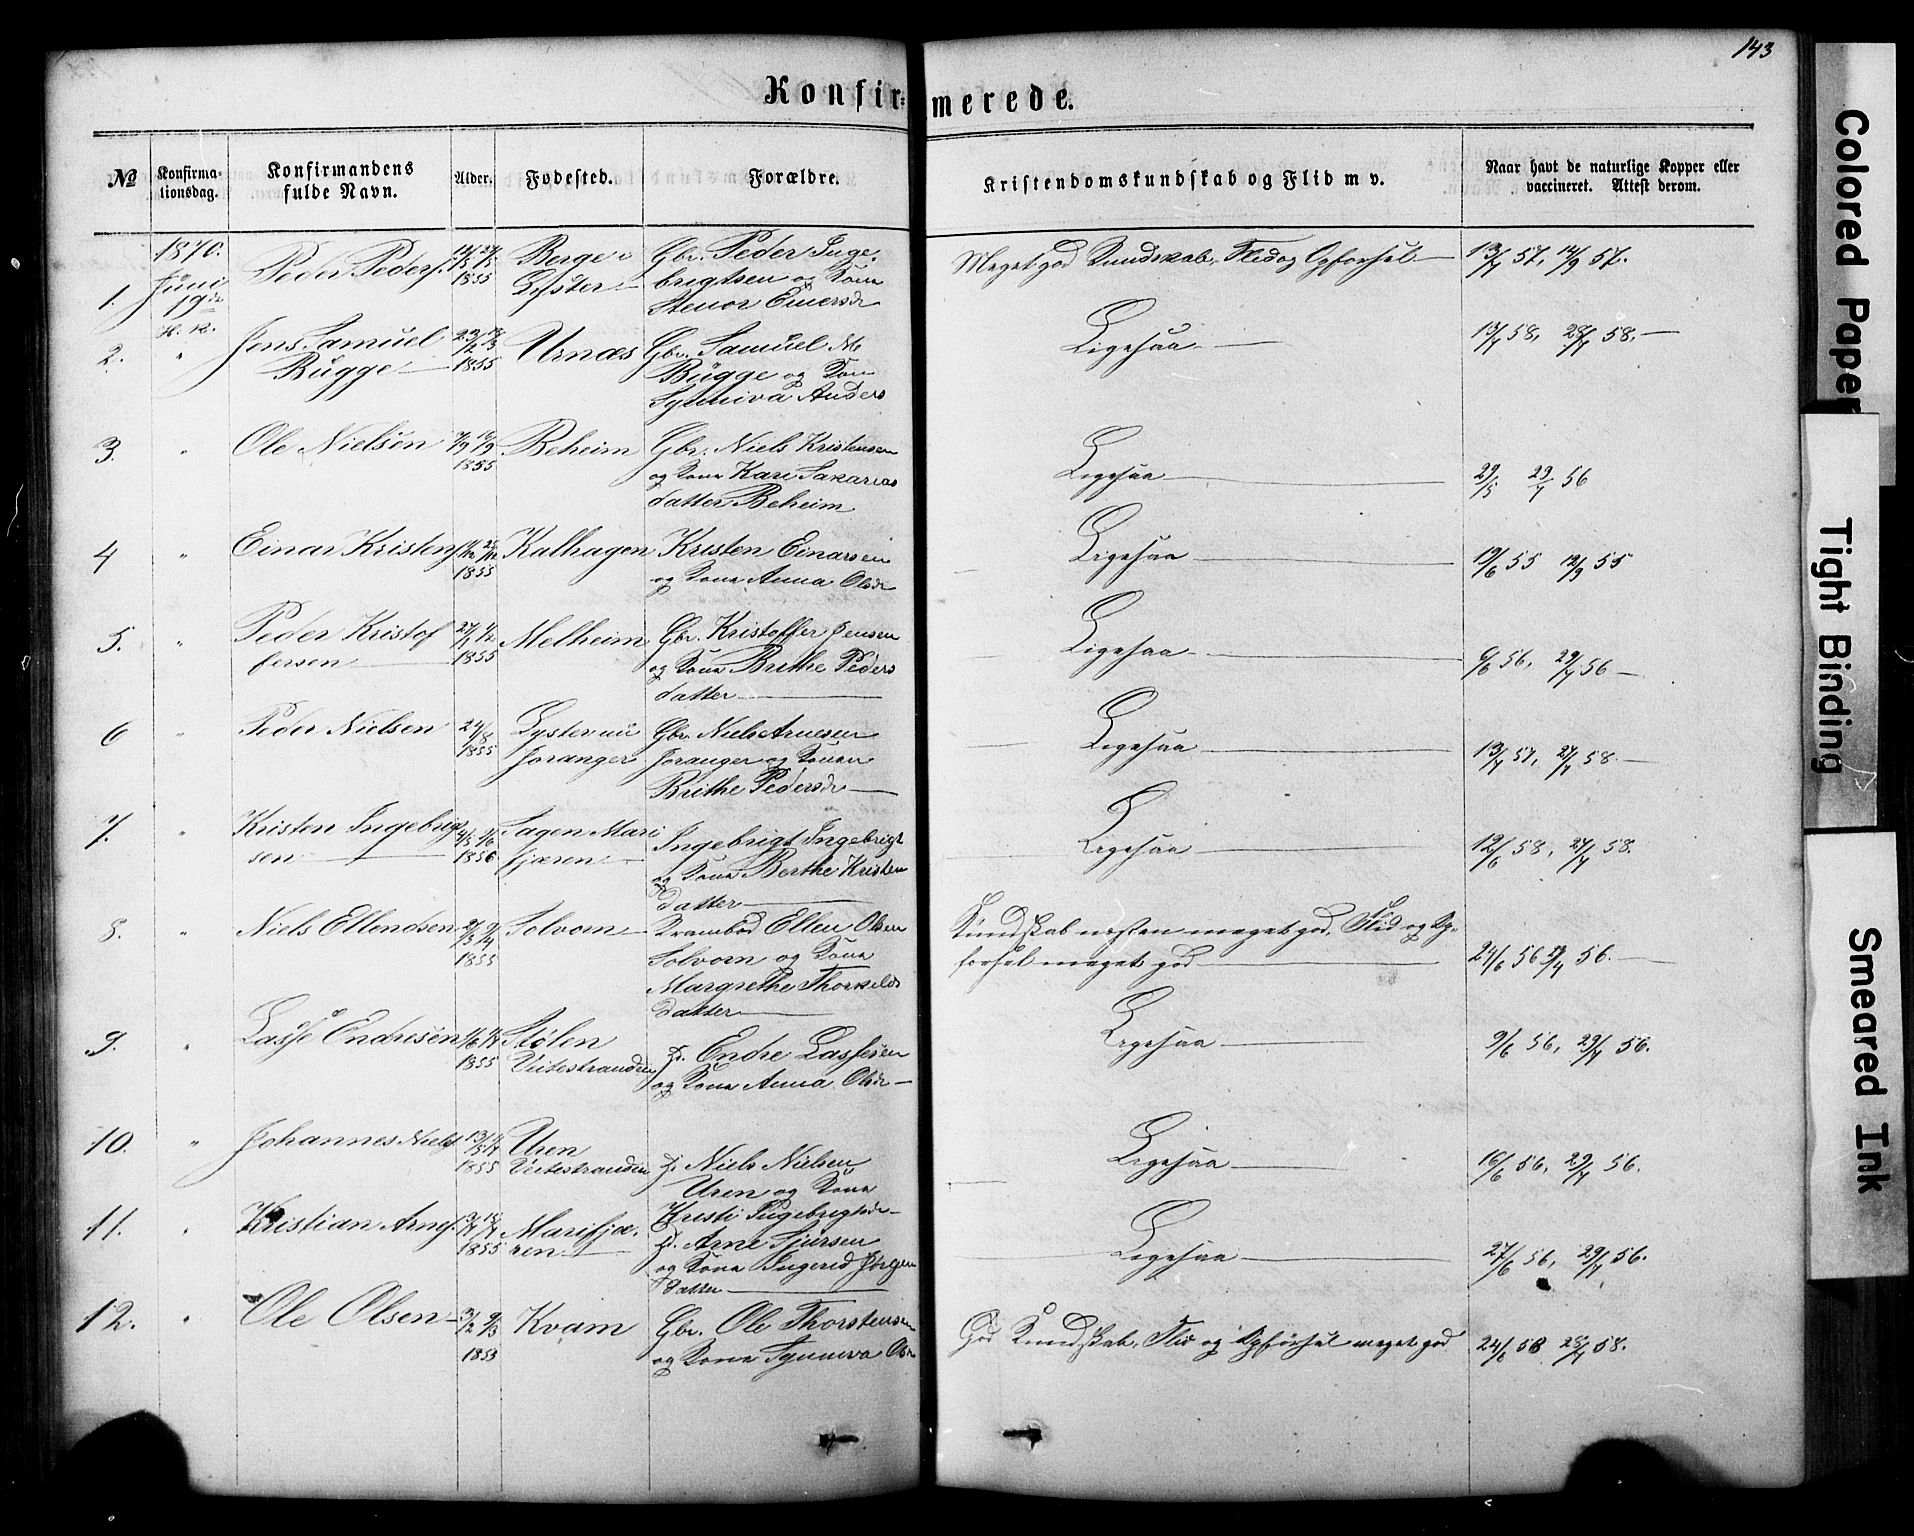 143
Konfir=
merede.
№
Konfirma-
tionsdag.
Konfirmandens
fulde Navn.
Alder.
Fødested.
Forældre.
Kristendomskundskab og Flid m v.
Naar havt de naturlige Kopper eller
vaccineret. Attest derom.
1870.
Juni
19de
H. K.
1. Peder Peders.
1855
Berge i
Lyster
Gbr. Peder Inge,
brigtsen og Kona
Stenor Einersdr
Meget god Kundskab, Flid og Opførsel 13/7 57, 14/9 57.
2. " Jens Samuel
Bugge
23/2 18/3
1855
Urnæs
Gbr. Samuel M
Bugge og Kon
Synneva Anders
Ligesaa 13/7 58, 28/7 58.
3. " Ole Nielsen
1855
Beheim
Gbr. Niels Kristensen
og Kona Kari Sakarias
datter Beheim
Ligesaa 29/5 29/7 56
4 " Einar Kristens
1855
Kalhagen
Kristen Einarsen
og Kona Anna Olsdr
Ligesaa 19/6 55 12/9 55
5. " Peder Kristof
fersen
1855
Melheim
Gbr. Kristoffer Jensen
og Kona Brithe Peders
datter
Ligesaa 6/6 56, 29/7 56
6 " Peder Nielsen
24/8
1855
Lyster nu
Joranger
Gbr. Niels Arnesen
Joranger og Konen
Brithe Pedersdr
Ligesaa 13/7 57, 27/7 58.
7. " Kristen Ingebrigt
sen
1856
Sagen Mari
fjæren
Ingebrigt Ingebrigt
og Kona Berthe Kristen
datter
Ligesaa 12/6 58, 27/7 58.
8. " Niels Ellendsen
1855
Solvorn
Krambod Ellen Olsen
Solvorn og Kona
Margrethe Thorkelds
datter
Kundskab næsten meget god, Flid og Op-
førsel meget god 24/6 56 56.
9. " Lasse Endresen
1855
Stølen
Veitestranden
Endre Lassesen
og Kona Anna Olsdr
Ligesaa 9/6 56, 29/7 56.
10. " Johannes Niels
1855
Uren
Veitestranden
Niels Nielsen
Uren og Kona
Kristi Ingebrigtsdr
Ligesaa 16/6 56, 29/7 56.
11. " Kristian Arnes.
1855
Marifjæ,
ren
Arne Sjursen
og Kona Ingerid Jørgen
datter
Ligesaa 27/6 56, 29/7 56.
12. " Ole Olsen
3/2 9/3
1853
Kvam
Gbr. Ole Thorstensen
og Kona Synneva Ols
God Kundskab, Flid og Opførsel meget god 24/6 58 28/7 58.
Colored Paper
Tight Binding
Smeared Ink